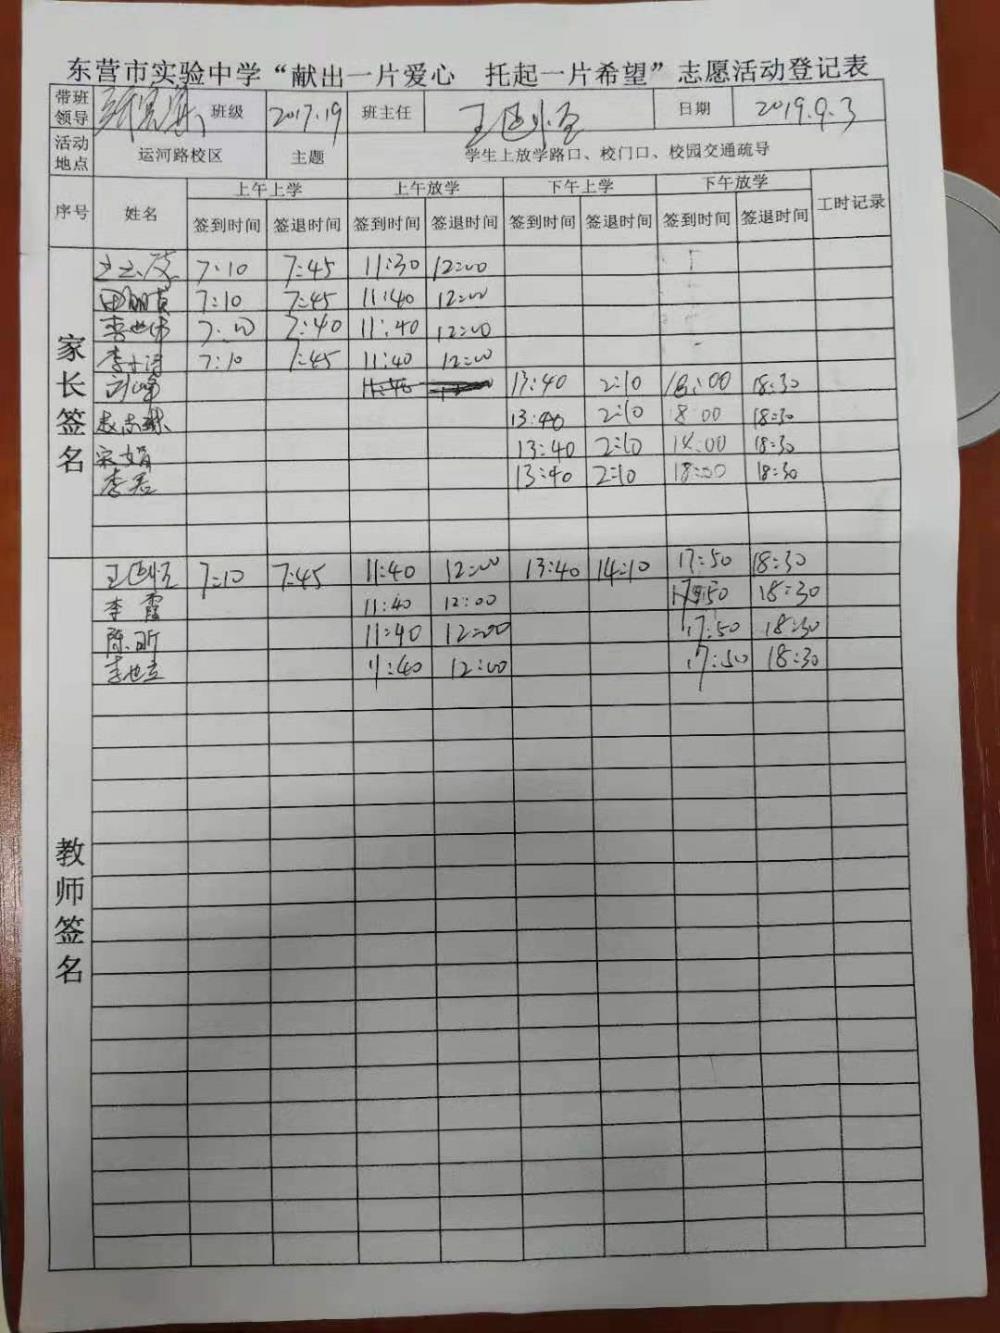 东营市实验中学“献出一片爱心 托起一片希望”志愿活动登记表
带班领导 班级 2017.19 班主任 日期 2019.9.3
活动地点 运河路校区 主题 学生上放学路口、校门口、校园交通疏导
序号 姓名 上午上学 上午放学 下午上学 下午放学 工时记录
签到时间 签退时间 签到时间 签退时间 签到时间 签退时间 签到时间 签退时间
家长签名
7:10 7:45 11:30 12:00
7:10 7:45 11:40 12:00
李世伟 7:00 7:40 11:40 12:00
7:10 7:45 11:40 12:00
刘峰 13:40 2:10 18:00 18:30
13:40 2:10 18:00 18:30
宋娟 13:40 2:10 18:00 18:30
李君 13:40 2:10 18:00 18:30
教师签名
7:10 7:45 11:40 12:00 13:40 14:10 17:50 18:30
李霞 11:40 12:00 17:50 18:30
陈昕 11:40 12:00 17:50 18:30
11:40 12:00 17:50 18:30